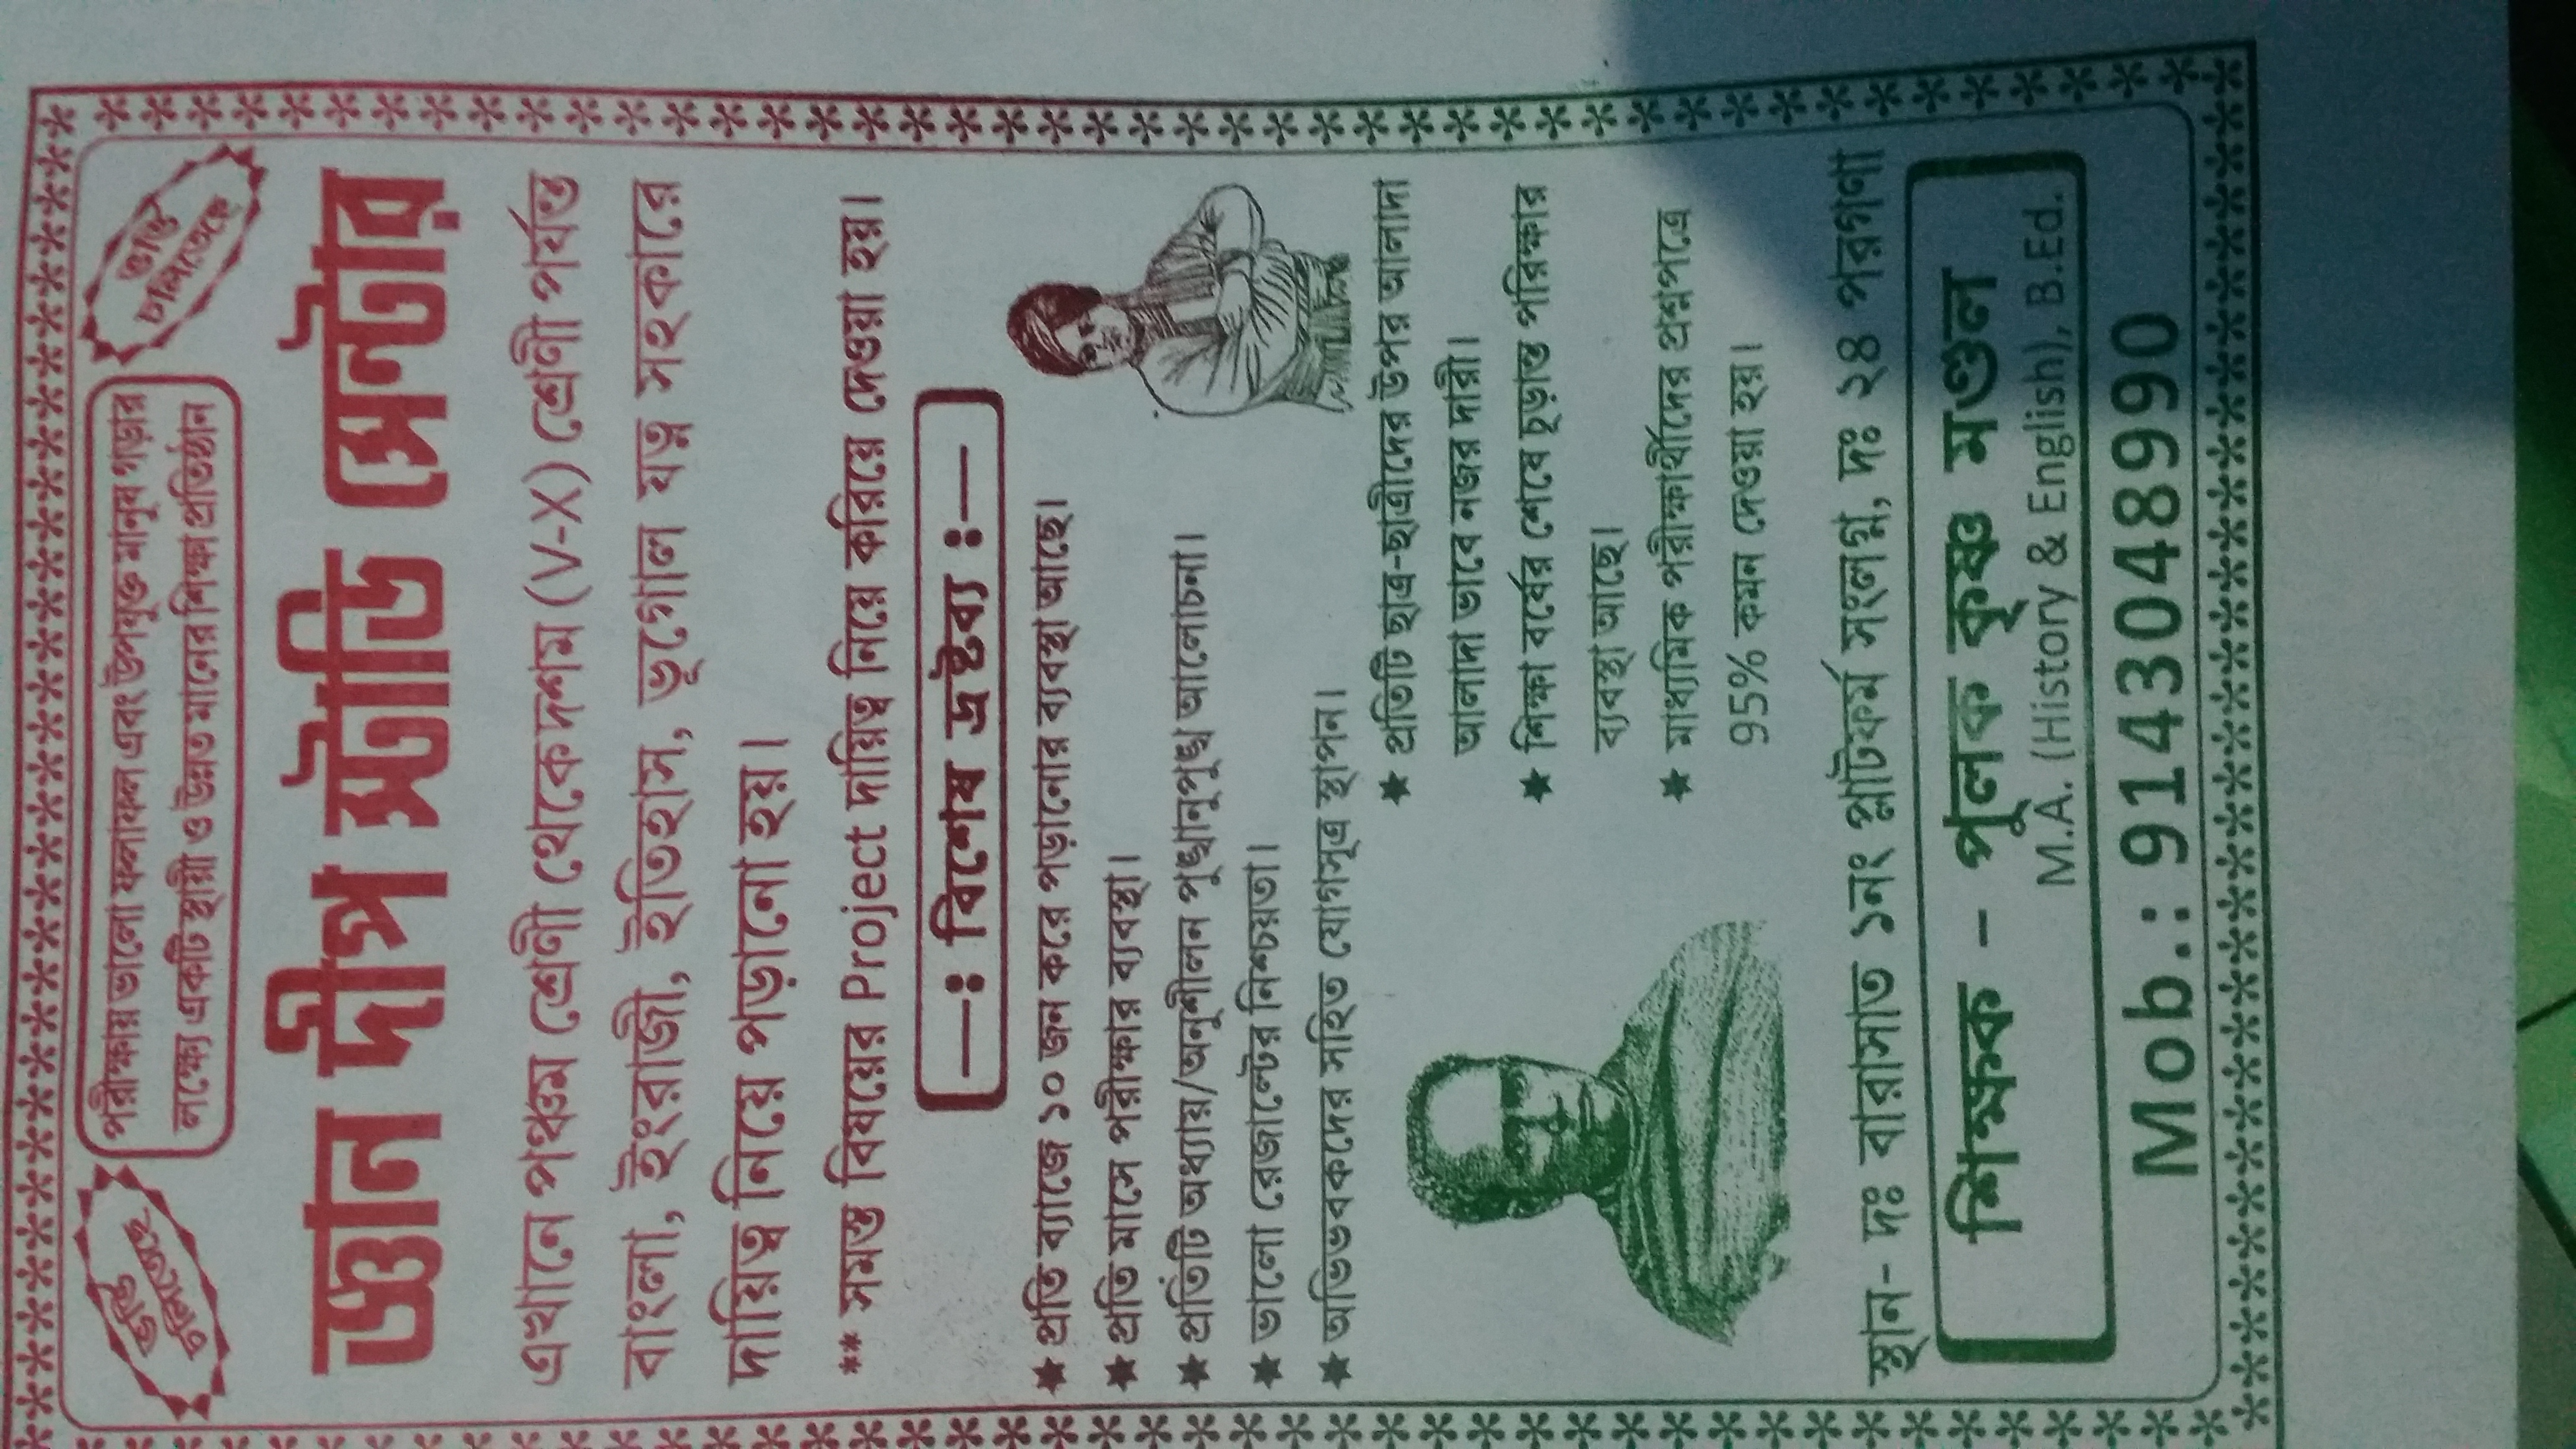 ভর্তি
চলিতেছে
পরীক্ষায় ভালো ফলাফল এবং উপযুক্ত মানুষ গড়ার
লক্ষ্যে একটি স্থায়ী ও উন্নত মানের শিক্ষা প্রতিষ্ঠান
ভর্তি
চলিতেছে
জ্ঞান দীপ স্টাডি সেন্টার
এখানে পঞ্চম শ্রেণী থেকে দশম (V-X) শ্রেণী পর্যন্ত
বাংলা, ইংরাজী, ইতিহাস, ভূগোল যত্ন সহকারে
দায়িত্ব নিয়ে পড়ানো হয়।
** সমস্ত বিষয়ের Project দায়িত্ব নিয়ে করিয়ে দেওয়া হয়।
—ঃ বিশেষ দ্রষ্টব্য ঃ—
★ প্রতি ব্যাজে ১০ জন করে পড়ানোর ব্যবস্থা আছে।
★ প্রতি মাসে পরীক্ষার ব্যবস্থা।
★ প্রতিটি অধ্যায়/অনুশীলন পুঙ্খানুপুঙ্খ আলোচনা।
★ ভালো রেজাল্টের নিশ্চয়তা।
★ অভিভবকদের সহিত যোগসূত্র স্থাপন।
★ প্রতিটি ছাত্র-ছাত্রীদের উপর আলাদা
আলাদা ভাবে নজর দারী।
★ শিক্ষা বর্ষের শেষে চূড়ান্ত পরিক্ষার
ব্যবস্থা আছে।
★ মাধ্যমিক পরীক্ষার্থীদের প্রশ্নপত্রে
95% কমন দেওয়া হয়।
স্থান- দঃ বারাসাত ১নং প্লাটফর্ম সংলগ্ন, দঃ ২৪ পরগণা
শিক্ষক – পুলক কৃষ্ণ মণ্ডল
M.A. (History & English), B.Ed.
Mob.: 9143048990